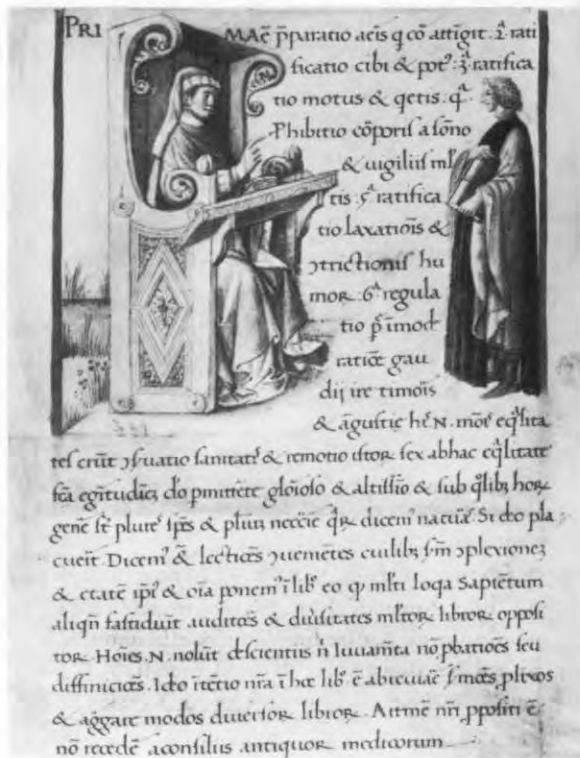 PRI MAē p̄paratio aeris q̄ cō attigit · 2ª rati
ficatio cibi & pot⁹ : 3ª ratifica
tio motus & q̄etis · 4ª
Phibitio cōporis a sōno
& uigiliis ml̄
tis · 5ª ratifica
tio laxatiōis &
ꝯtrictionis hu
mor · 6ª regula
tio p̄ īmod̄
ratiōe gau
dij ire timōis
& āgustie
tes erūt ꝯſuatio sanitat & remotio istor sex abhac eq̄litate
gene st̄ plures sp̄es & dicem⁹ Si deo pla
cuerit . Dicem⁹ & cuilibꝫ ꝯplexioneꝫ
& etatē ip̄i⁹ & oīa ponem⁹ ī lib eo q̄ ml̄ti loq̄a Sapiētum
aliq̄n fastidiūt auditōes & diuſitates ml̄tor libror opposi
tor . Hoīes . N . nolūt d̄ scientiis n̄ Iuuam̄ta nō pbatiōes seu
diffiniciōes . Ido ītētio nr̄a ī hoc lib ē abreuiaē plixos
& aḡgare modos diuersor libror . nr̄i ppositi ē
nō recedē a consiliis antiquor medicorum